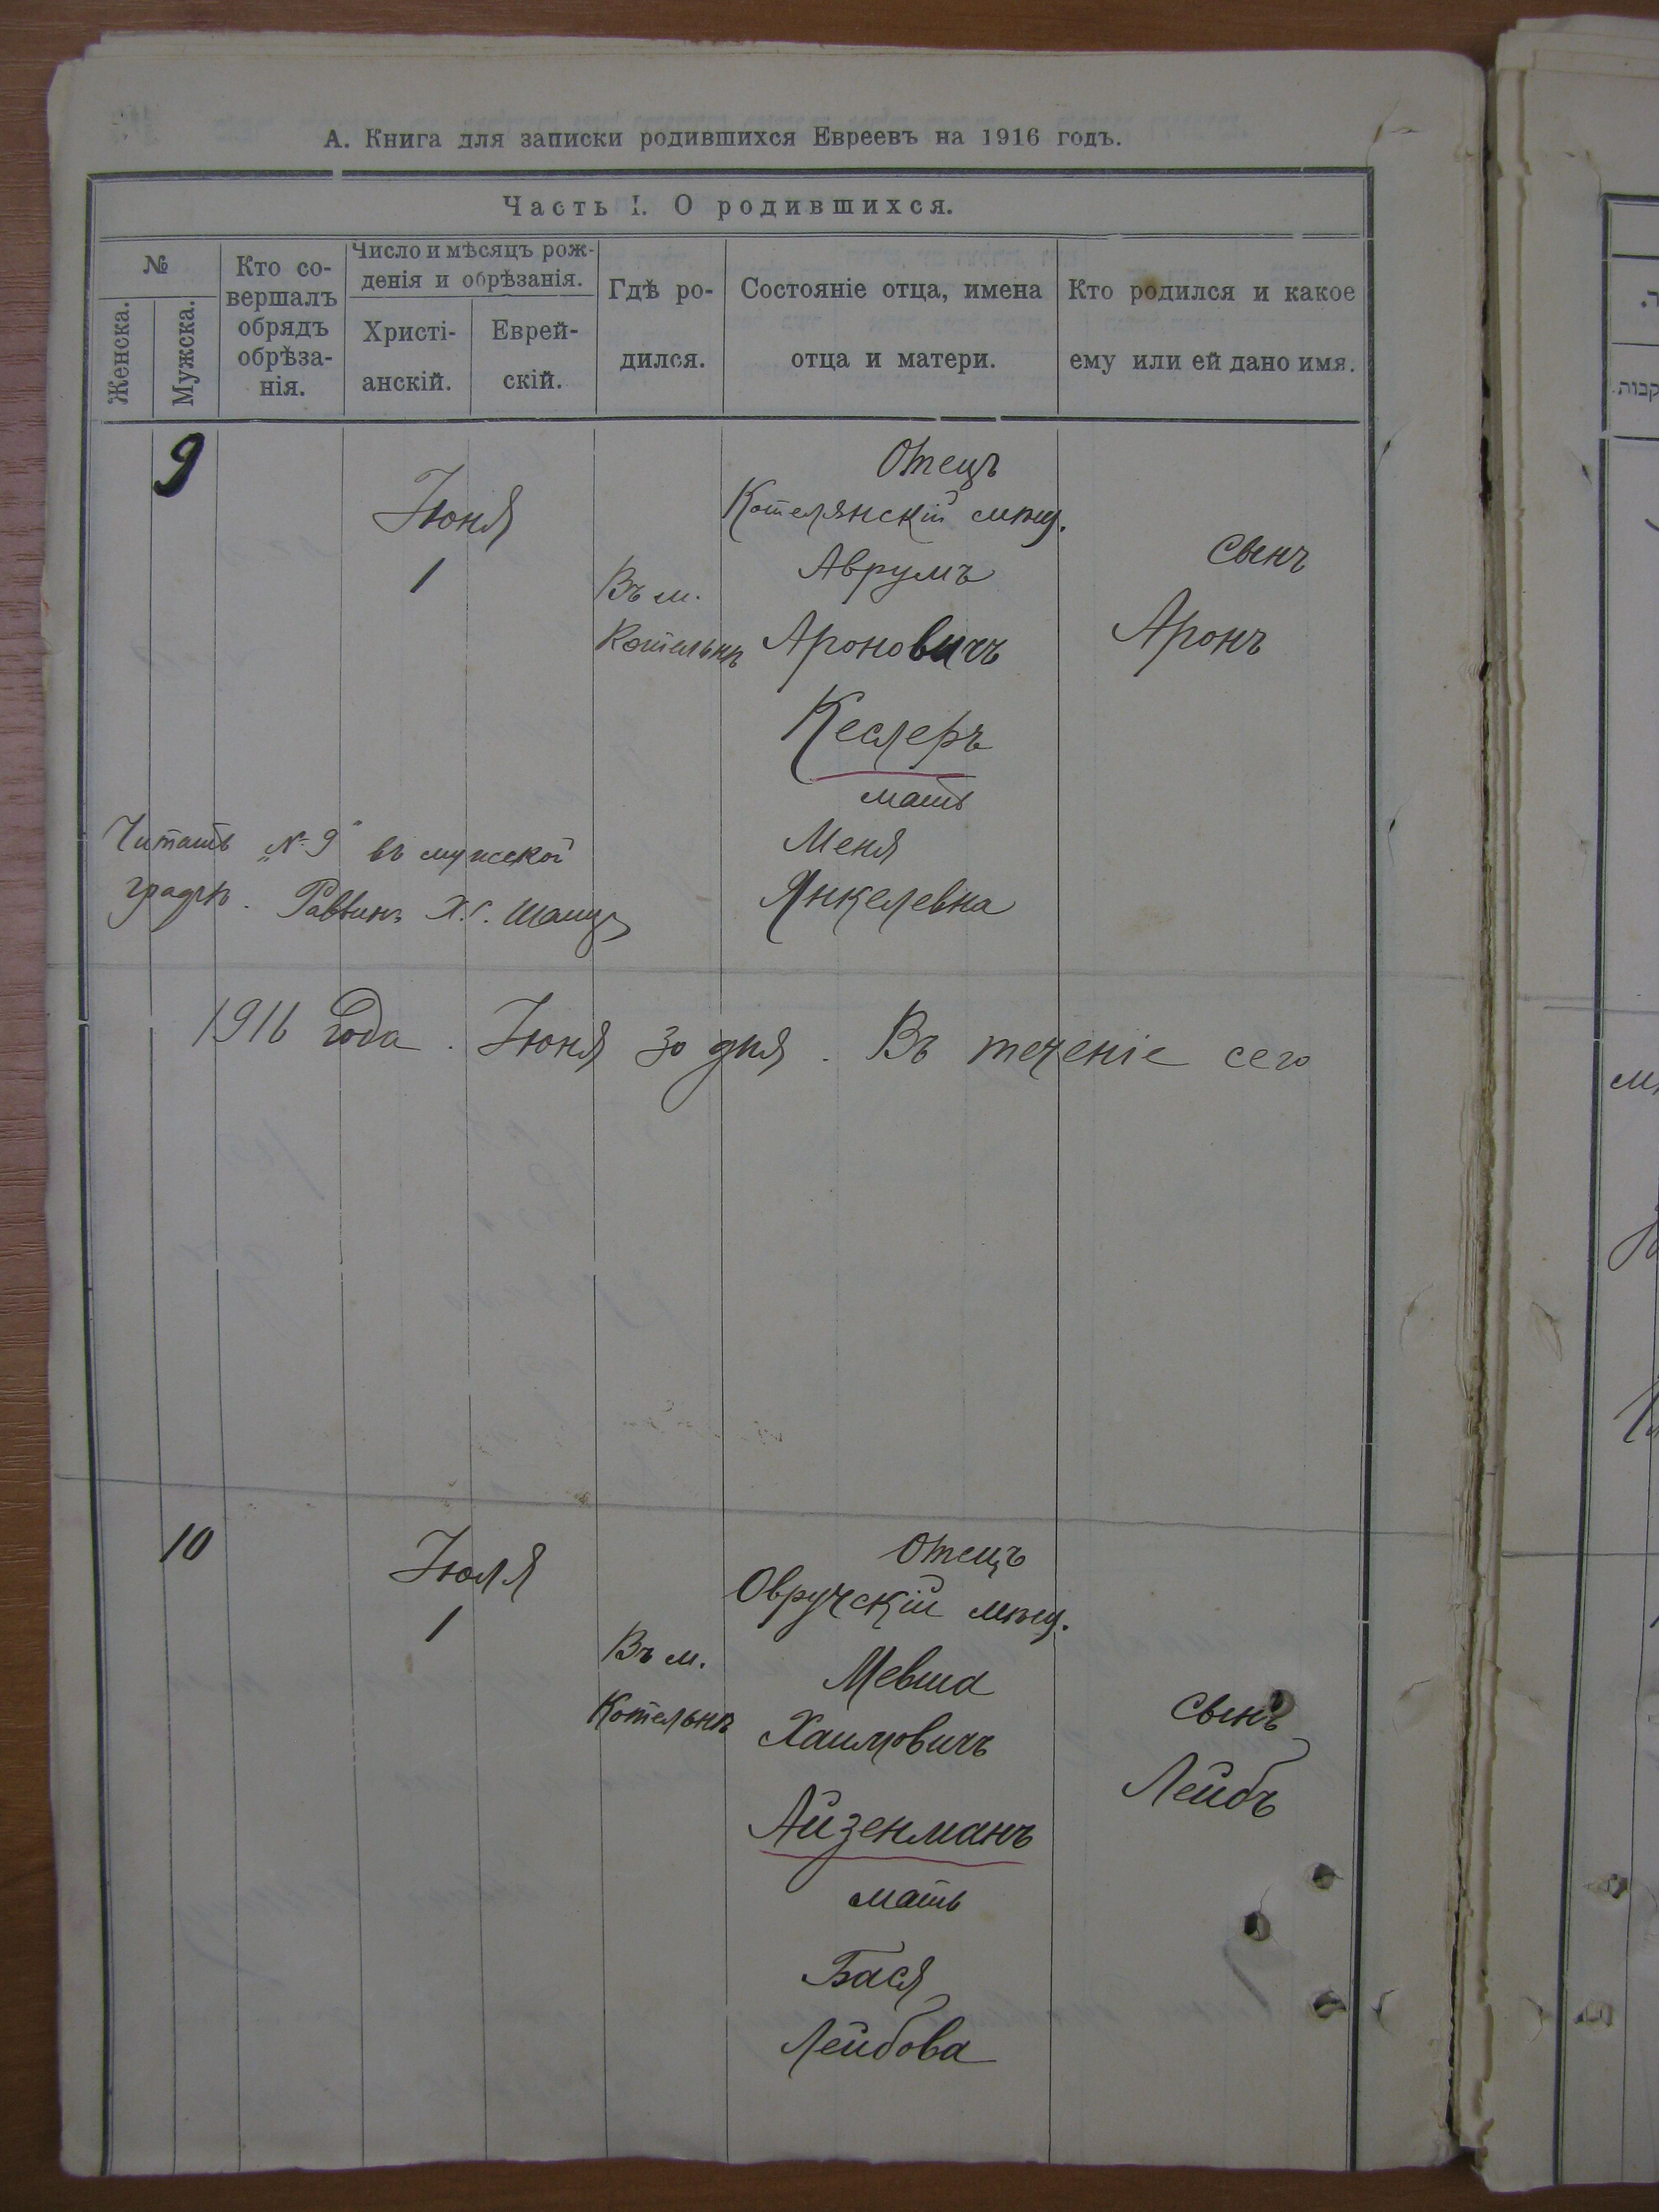 А. Книга для записки родившихся Евреевъ на 1916 годъ.
Часть I. О родившихся.
№
Женска.
Мужска.
Кто со-
вершалъ
обрядъ
обрѣза-
нія.
Число и мѣсяцъ рож-
денія и обрѣзанія.
Христі-
анскій.
Еврей-
скій.
Гдѣ ро-
дился.
Состояніе отца, имена
отца и матери.
Кто родился и какое
ему или ей дано имя.
9
Іюня
1
Въ м.
Котельнѣ
Отецъ
Котелянскій мѣщ.
Аврумъ
Ароновичъ
Кеслеръ
мать
Меня
Янкелевна
сынъ
Аронъ
Читать „№ 9" въ мужской
графѣ. Раввинъ Х.
1916 года. Іюня 30 дня. Въ теченіе сего
10
Іюля
1
Въ м.
Котельнѣ
Отецъ
Овручскій мѣщ.
Мевша
Хаимовичъ
Айзенманъ
мать
Бася
Лейбова
сынъ
Лейбъ
קבות.